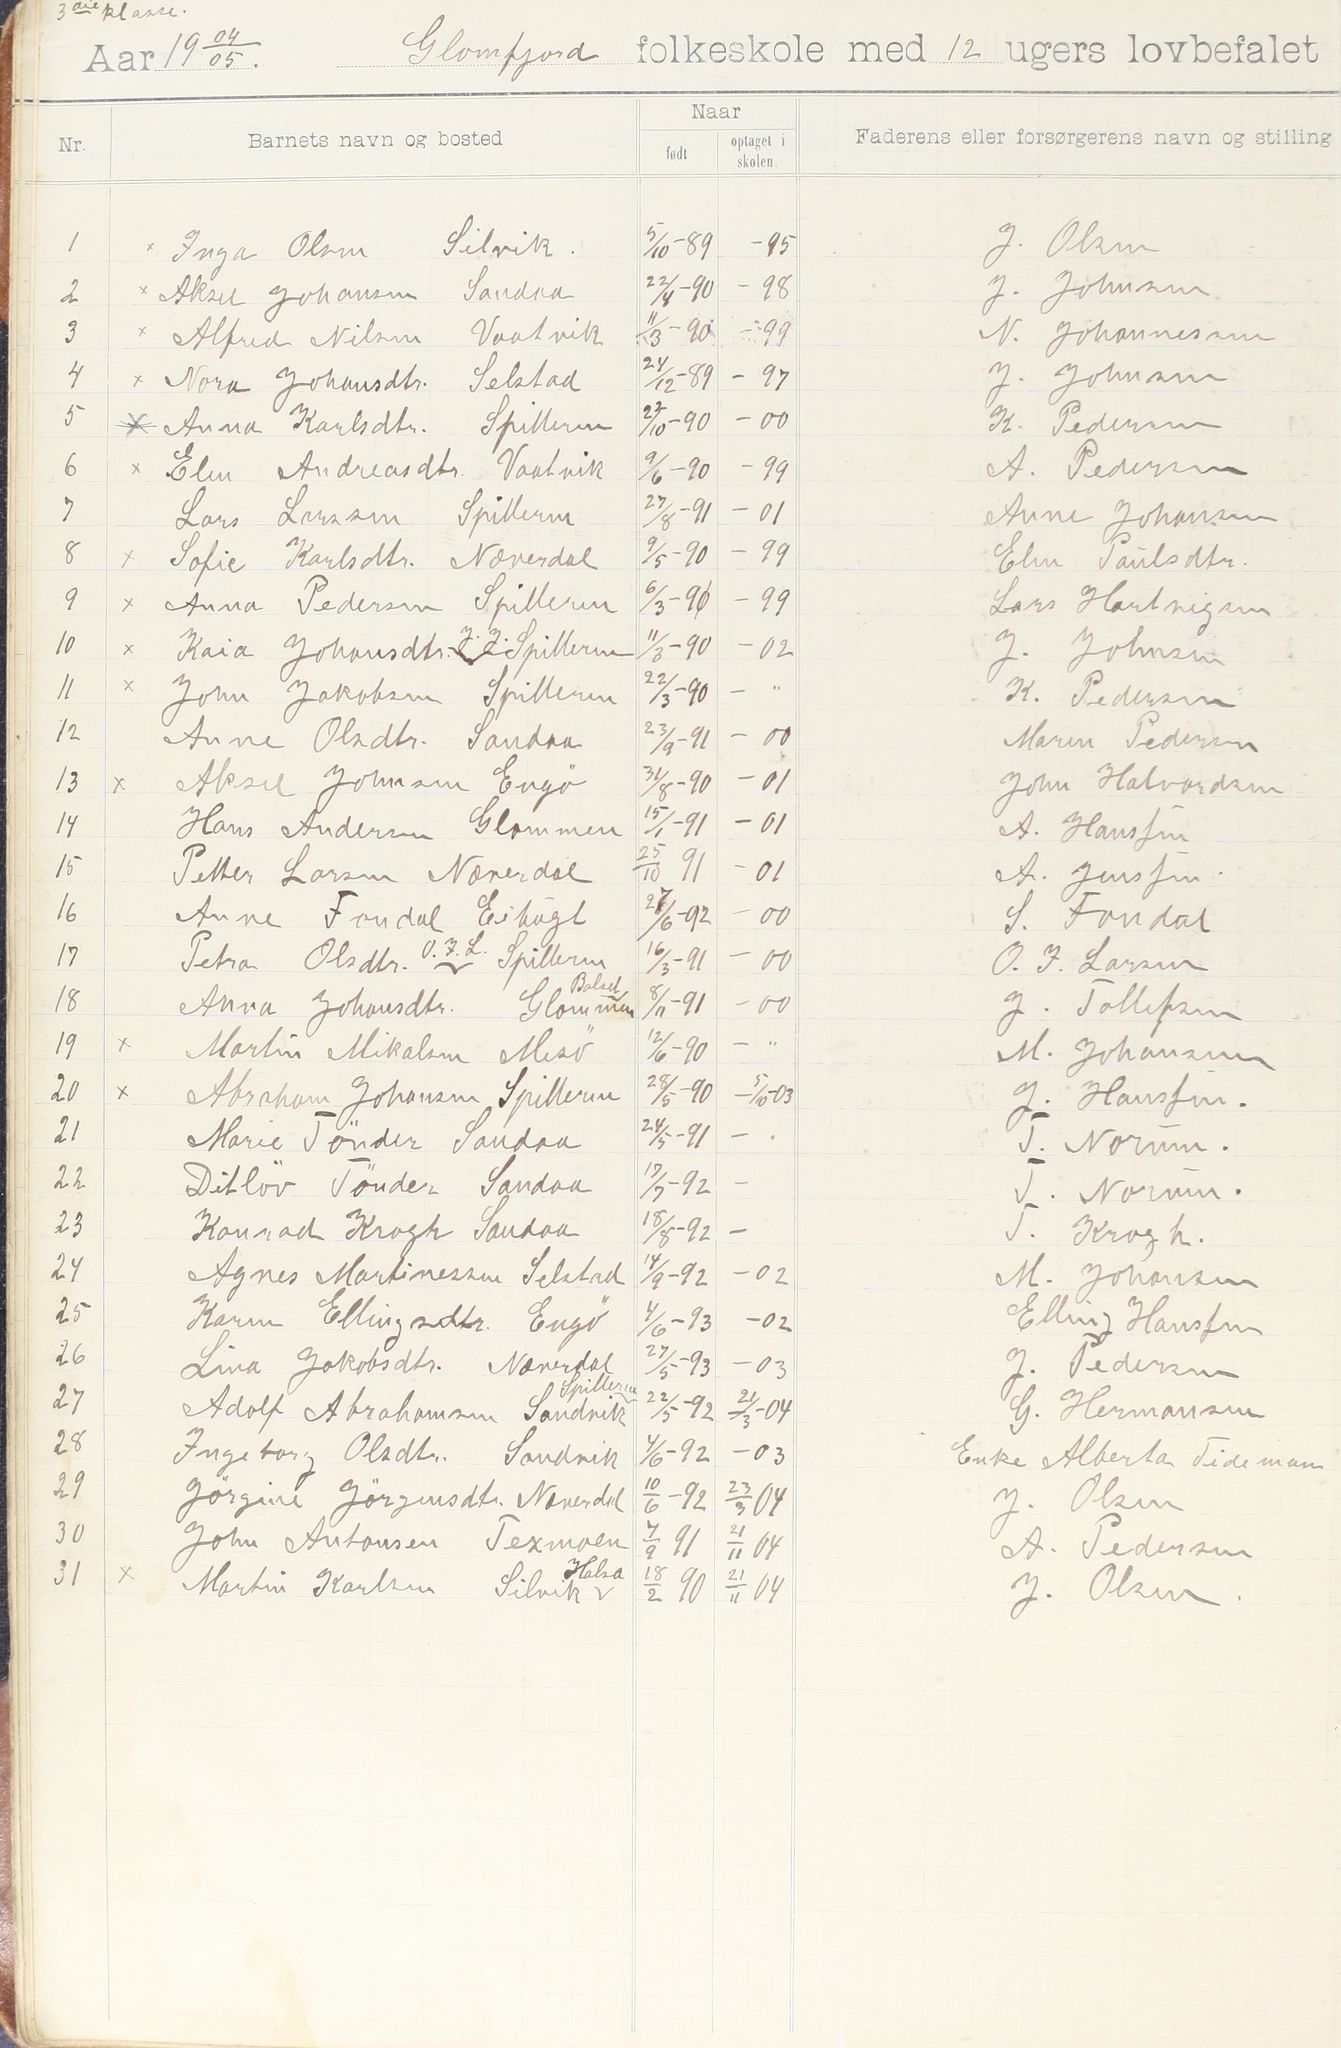 3die klasse.
Aar 19 04/05. Glomfjord folkeskole med 12 ugers lovbefalet
Naar
Nr. Barnets navn og bosted født optaget i skolen. Faderens eller forsørgerens navn og stilling
1 x Inga Olsen Silvik. 5/10-89 -95 J. Olsen
2 x Aksel Johansen Sandaa 22/4-90 -98 J. Johnsen
3 x Alfred Nilsen Vaatvik 11/3-90 -99 N. Johannessen
4 x Nora Johansdtr. Selstad 24/12-89 -97 J. Johnsen
5 x Anna Karlsdtr. Spilleren 27/10-90 -00 K. Pedersen
6 x Elen Andreasdtr. Vaatvik 9/6-90 -99 A. Pedersen
7 Lars Larssen Spilleren 27/8-91 -01 Anne Johansen
8 x Sofie Karlsdtr. Næverdal 9/5-90 -99 Elen Paulsdtr.
9 x Anna Pedersen Spilleren 6/3-90 -99 Lars Hartvigsen
10 x Kaia Johansdtr. J. J. Spilleren 11/3-90 -02 J. Johnsen
11 x John Jakobsen Spilleren 22/3-90 - " K. Pedersen
12 Anne Olsdtr. Sandaa 23/9-91 -00 Maren Pedersen
13 x Aksel Johnsen Engö 31/8-90 -01 John Halvordsen
14 Hans Andersen Glommen 15/1-91 -01 A. Hansen
15 Petter Larsen Næverdal 25/10 91 -01 A. Jensen.
16 Anne Fondal 27/6-92 -00 S. Fondal
17 Petra Olsdtr. O. F. L. Spilleren 16/3-91 -00 O. F. Larsen
18 Anna Johansdtr. Glommen Bolsel 8/11-91 -00 J. Tollefsen
19 x Martin Mikalsen Mesö 12/6-90 - " M. Johansen
20 x Abraham Johansen Spilleren 28/5-90 -5/10-03 J. Hansen.
21 Marie Tönder Sandaa 24/5-91 - . T. Norum.
22 Ditlöv Tönder Sandaa 17/7-92 - T. Norum.
23 Konrad Krogh Sandaa 18/8-92 - T. Krogh.
24 Agnes Martinessen Selstad 14/9-92 -02 M. Johansen
25 Karen Ellingsdtr. Engö 4/6-93 -02 Elling Hansen
26 Lina Jakobsdtr. Næverdal 27/5-93 -03 J. Pedersen
27 Adolf Abrahamsen Sandvik Spilleren 22/5-92 21/3-04 G. Hermansen
28 Ingeborg Olsdtr. Sandvik 4/6-92 -03 Enke Alberta Tideman
29 Jörgine Jörgensdtr. Næverdal 10/6-92 23/3 04 J. Olsen
30 John Antonsen Texmoen 7/9 91 21/11 04 A. Pedersen
31 x Martin Karlsen Silvik Halsa 18/2 90 21/11 04 J. Olsen.